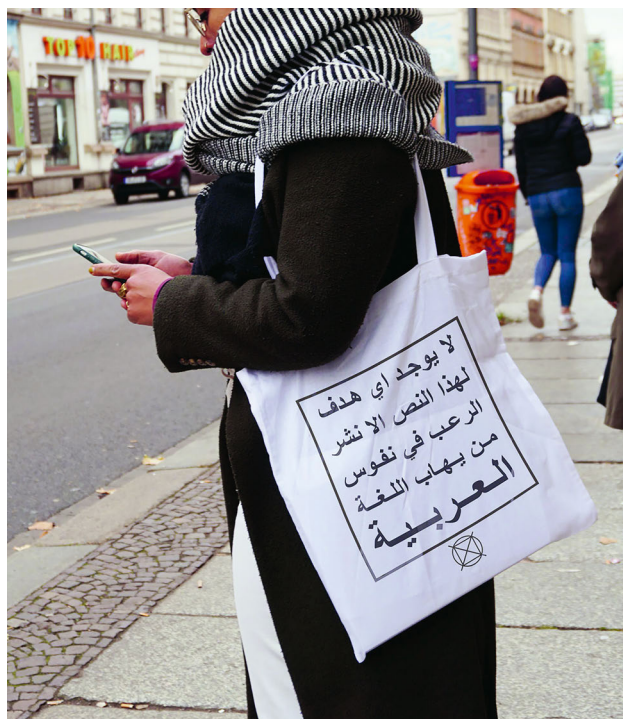 TOP10 HAIR
لا يوجد اي هدف
لهذا النص الا نشر
الرعب في نفوس
من يهاب اللغة
العربية